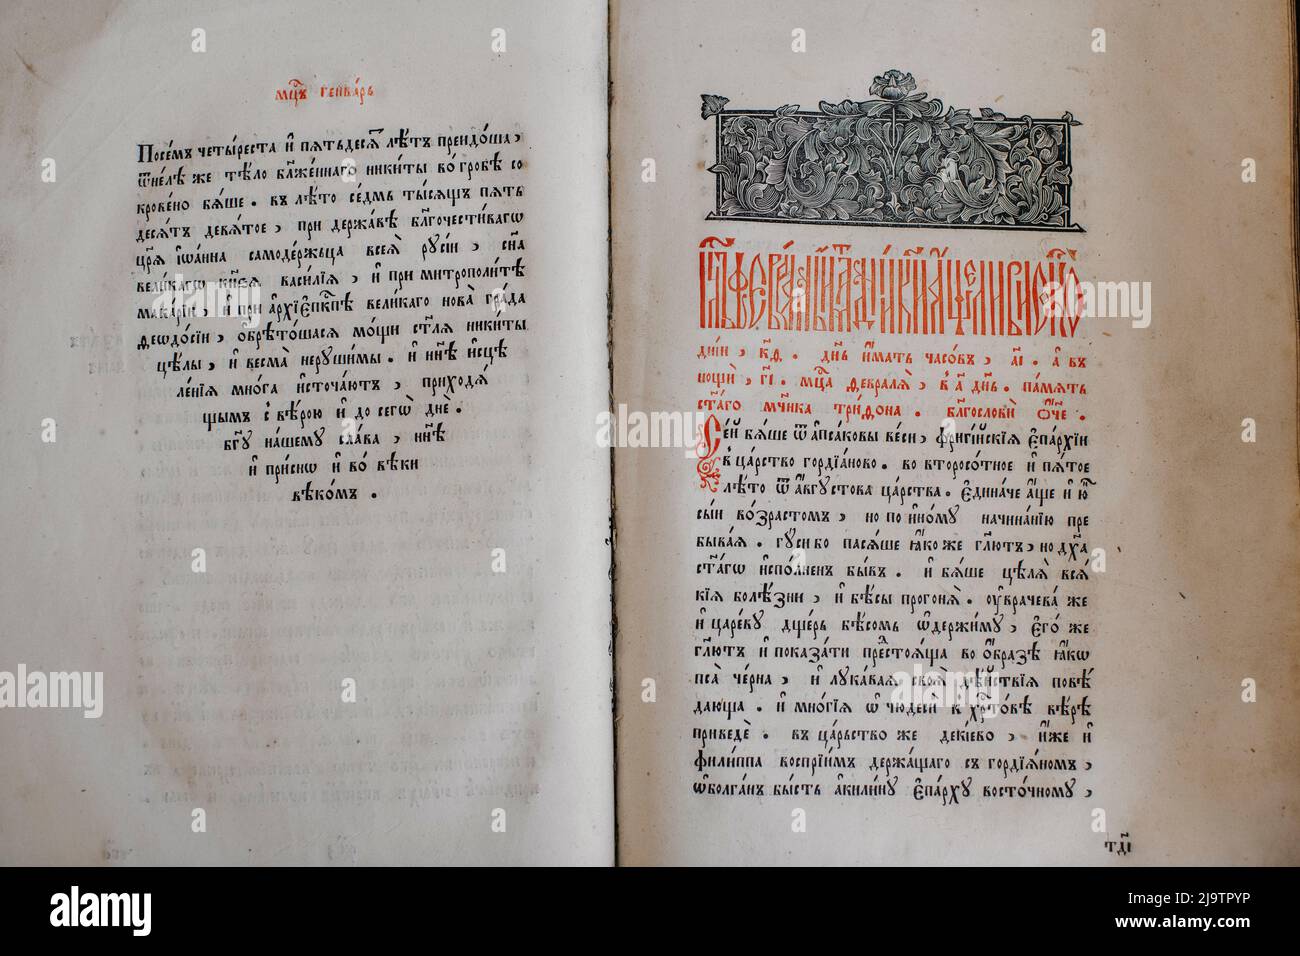 мц҃ъ геннва́рь
Посе́мъ четы́реста и҆ пѧтьдесѧ́тъ лѣ́тъ преидо́ша,
ѿнелѣ́ же тѣ́ло бл҃же́ннаго ники́ты во́ гробѣ со
крове́но бѧ́ше. въ лѣ́то се́дмь ты́сѧщъ пѧть
десѧ́тъ девѧ́тое, при держа́вѣ бл҃гочести́вагѡ
цр҃ѧ̀ і҆ѡа́нна самоде́ржьца всеѧ̀ русі́и, сн҃а
вели́кагѡ кн҃ѕѧ васи́лїѧ, и҆ при митрополи́тѣ
мака́рїи, и҆ при а҆рхїеп҃кпѣ вели́каго нова̀ гра́да
ѳеѡдо́сїи, ѡбрѣто́шасѧ мо́щи ст҃лѧ ники́ты
цѣ́лы, и҆ весма̀ неруши́мы. и҆ нн҃ѣ и҆сцѣ
ле́нїѧ мно́га и҆сточа́ютъ, приходѧ́
щымъ с вѣ́рою и҆ до сегѡ̀ дн҃е.
бг҃у на́шему сла́ва, нн҃ѣ
и҆ при́снѡ и҆ во́ вѣки
вѣко́мъ.
дні́и, к҃ѳ. дн҃ь и҆́мать часо́въ, а҃і. а҆ въ
нощѝ, г҃і. мц҃а ѳевра́лѧ, в̾ а҃ дн҃ь. па́мѧть
ст҃а́го мч҃ника три́ѳона. бл҃гословѝ ѻ҆́ч҃е.
Се́й бѧ́ше ѿ а҆псако́вы ве́си, фриги́йскїѧ є҆па́рхїи
в̾ ца́рство гордїа́ново. во второсо́тное и҆ пѧ́тое
лѣ́то ѿ а҆́вгустова ца́рства. є҆дина́че а҆́ще и҆ ю҆́
сы́й во́зрастомъ, но по и҆но́му начина́нїю пре
быва́ѧ. гу́си бо пасѧ́ше ꙗ҆́коже гл҃ютъ, но дх҃а
ст҃а́гѡ и҆спо́лненъ бы́въ. и҆ бѧ́ше цѣлѧ̀ всѧ́
кїѧ болѣ́зни, и҆ бѣ́сы прогонѧ̀. оу҆врачева́ же
и҆ царе́ву дще́рь бѣ́сомъ ѡ҆держи́му, є҆го́ же
гл҃ютъ и҆ показа́ти пре́стоѧща во ѻ҆́бразѣ ꙗ҆́кѡ
пса̀ че́рна, и҆ лука́ваѧ своѧ̀ дѣ́йствїѧ повѣ́
дающа. и҆ мно́гїѧ ѡ҆ чюдесѝ к хр҃то́вѣ вѣ́рѣ
приведѐ. въ ца́рьство же деки́ево, и҆́же и҆
фили́ппа воспрїи́мъ держа́щаго съ гордїа́номъ,
ѡ҆болга́нъ бы́сть а҆кили́ну є҆па́рху восто́чному,
тд҃і
alamy
Image ID: 2J9TPYP
www.alamy.com